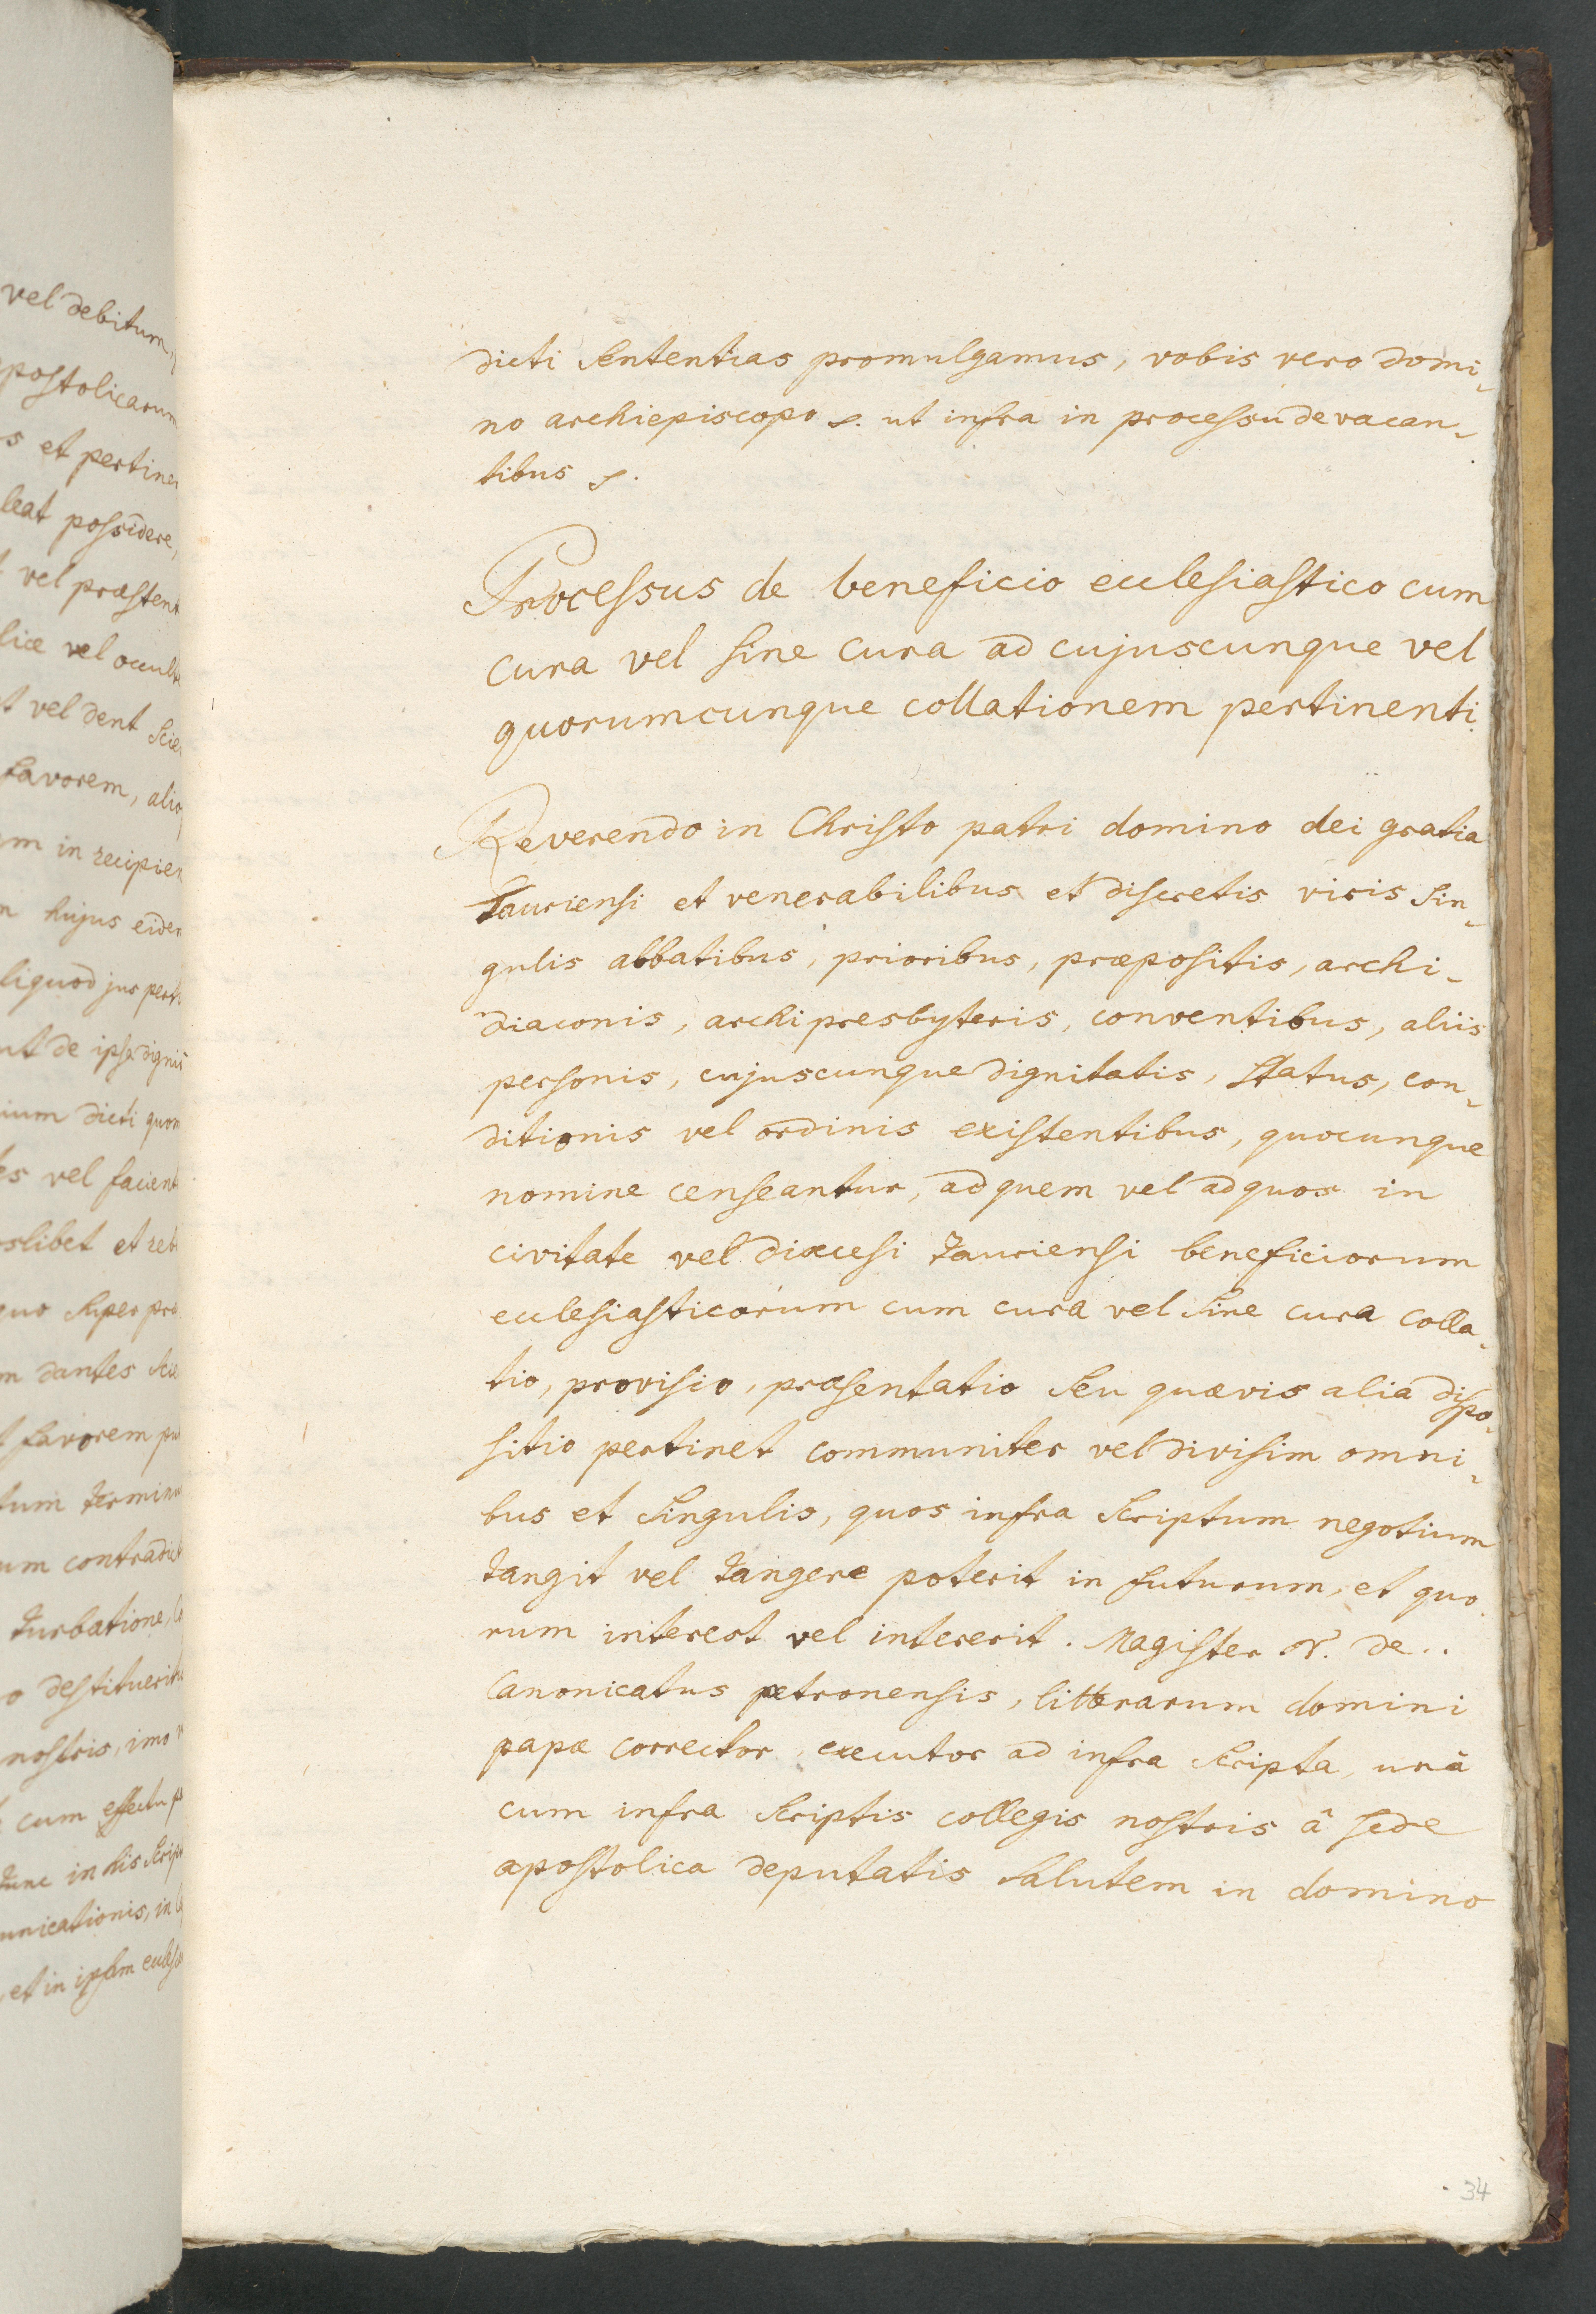 vel debitum,
postolicarum
s et pertine
leat possidere,
vel præstent
lice vel occult
t vel dent scie
favorem, alio
m in recipien
hujus eiden
liquod jus pert
ut de ipse digni
ium dicti quom
es vel facient
slibet et reb
quo super pro
m dantes scie
t favorem pu
tum termin
um contradict
turbatione,
o destituerit
nostris, imo
cum effectu p
tunc in his script
unicationis, in
et in ipsam eccles
dicti sententias promulgamus, vobis vero domi-
no archiepiscopo s. ut infra in processu de vacan-
tibus s.
Processus de beneficio ecclesiastico cum
cura vel sine cura ad cujuscunque vel
quorumcunque collationem pertinenti
Reverendo in Christo patri domino dei gratia
Tauriensi et venerabilibus et discretis viris sin-
gulis abbatibus, prioribus, præpositis, archi-
diaconis, archipresbyteris, conventibus, aliis
personis, cujuscunque dignitatis, status, con-
ditionis vel ordinis existentibus, quocunque
nomine censeantur, ad quem vel ad quos in
civitate vel diœcesi tauriensi beneficiorum
ecclesiasticorum cum cura vel sine cura colla-
tio, provisio, præsentatio seu quævis alia dispo-
sitio pertinet communiter vel divisim omni-
bus et singulis, quos infra scriptum negotium
tangit vel tangere poterit in futurum, et quo
rum interest vel intererit. Magister N. de..
Canonicatus petronensis, litterarum domini
papæ corrector, executor ad infra scripta, unà
cum infra scriptis collegis nostris â sede
apostolica deputatis salutem in domino
34